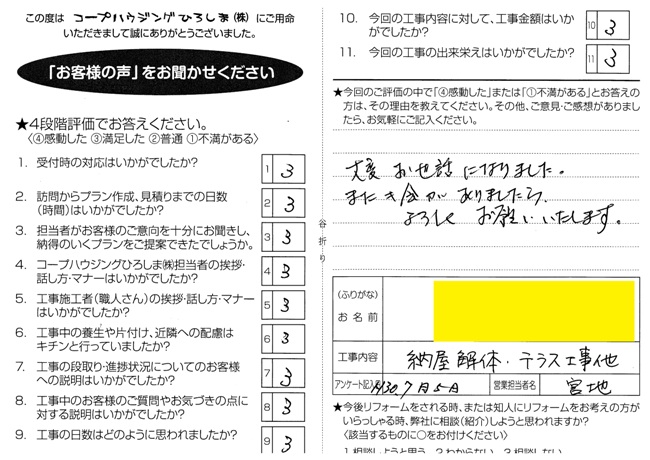 この度は コープハウジングひろしま(株) にご用命
いただきまして誠にありがとうございました。
「お客様の声」をお聞かせください
★4段階評価でお答えください。
〈④感動した ③満足した ②普通 ①不満がある〉
1. 受付時の対応はいかがでしたか? 1 3
2. 訪問からプラン作成、見積りまでの日数
(時間)はいかがでしたか? 2 3
3. 担当者がお客様のご意向を十分にお聞きし、
納得のいくプランをご提案できたでしょうか。 3 3
4. コープハウジングひろしま㈱担当者の挨拶・
話し方・マナーはいかがでしたか? 4 3
5. 工事施工者(職人さん)の挨拶・話し方・マナー
はいかがでしたか? 5 3
6. 工事中の養生や片付け、近隣への配慮は
キチンと行っていましたか? 6 3
7. 工事の段取り・進捗状況についてのお客様
への説明はいかがでしたか? 7 3
8. 工事中のお客様のご質問やお気づきの点に
対する説明はいかがでしたか? 8 3
9. 工事の日数はどのように思われましたか? 9 3
谷折り
10. 今回の工事内容に対して、工事金額はいか
がでしたか? 10 3
11. 今回の工事の出来栄えはいかがでしたか? 11 3
★今回のご評価の中で「④感動した」または「①不満がある」とお答えの
方は、その理由を教えてください。その他、ご意見・ご感想がありまし
たら、お気軽にご記入ください。
大変 お世話 になりました。
また き会が ありましたら
よろしく お願いいたします。
(ふりがな)
お名前
工事内容 納屋解体・テラス工事他
アンケート記入日 H30.7月5日 営業担当者名 宮地
★今後リフォームをされる時、または知人にリフォームをお考えの方が
いらっしゃる時、弊社に相談(紹介)しようと思われますか?
〈該当するものに○をお付けください〉
1.相談しようと思う 2.わからない 3.相談しない